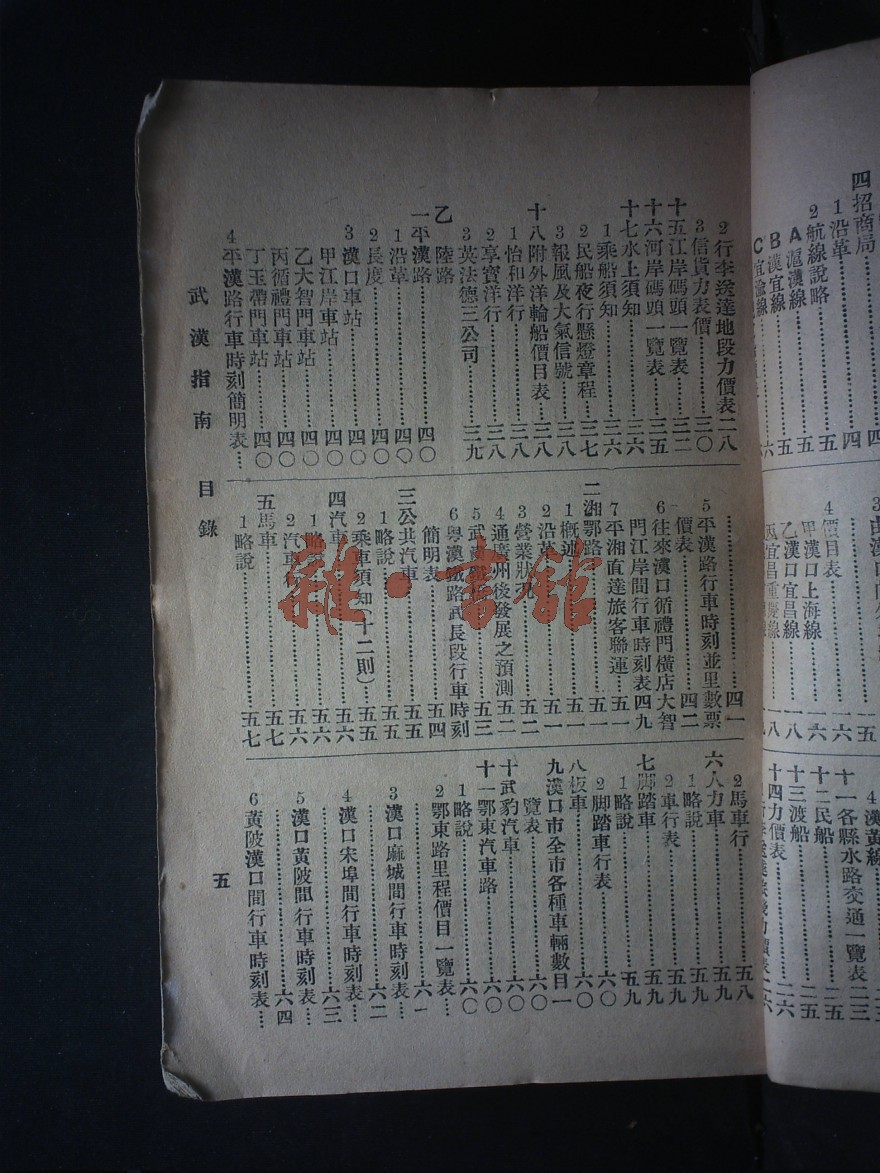 四招商局……四
1沿革……四
2航線說略……五
A滬漢線……五
B漢宜線……五
C宜渝線……六
4價目表……一六
甲漢口上海線……一六
乙漢口宜昌線……一八
丙宜昌重慶線……一八
4漢黃線
十一各縣水路交通一覽表……二三
十二民船……二五
十三渡船……二五
十四力價表……二六
2行李送達地段力價表二八
3信貨力表價……三〇
十五江岸碼頭一覽表……三二
十六河岸碼頭一覽表……三五
十七水上須知……三六
1乘船須知……三六
2民船夜行懸燈章程……三七
3報風及大氣信號……三八
十八附外洋輪船價目表……三八
1怡和洋行……三八
2享寶洋行……三八
3英法德三公司……三九
乙 陸路
一平漢路……四〇
1沿革……四〇
2長度……四〇
3漢口車站……四〇
甲江岸車站……四〇
乙大智門車站……四〇
丙循禮門車站……四〇
丁玉帶門車站……四〇
4平漢路行車時刻簡明表……
……四一
5平漢路行車時刻並里數票
價表……四二
6往來漢口循禮門橫店大智
門江岸間行車時刻表四九
7平湘直達旅客聯運……五一
二湘鄂路……五一
1概述……五一
2沿革……五一
3營業狀況……五二
4通廣州後發展之預測……五二
5武……五三
6粵漢鐵路武長段行車時刻
簡明表……五四
三公共汽車……五五
1略說……五五
2乘車須知(十二則)……五五
四汽車……五六
1略說……五六
2汽車行……五六
五馬車……五七
1略說……五七
2馬車行……五八
六人力車……五九
1略說……五九
2車行表……五九
七脚踏車……五九
1略說……五九
2脚踏車行表……六〇
八板車……六〇
九漢口市全市各種車輛數目一
覽表……六〇
十武豹汽車……六〇
十一鄂東汽車路……六〇
1略說……六〇
2鄂東路里程價目一覽表……
……六一
3漢口麻城間行車時刻表……
……六二
4漢口宋埠間行車時刻表……
……六三
5漢口黃陂間行車時刻表……
……六四
6黃陂漢口間行車時刻表……
武漢指南 目錄
五
雜·書館